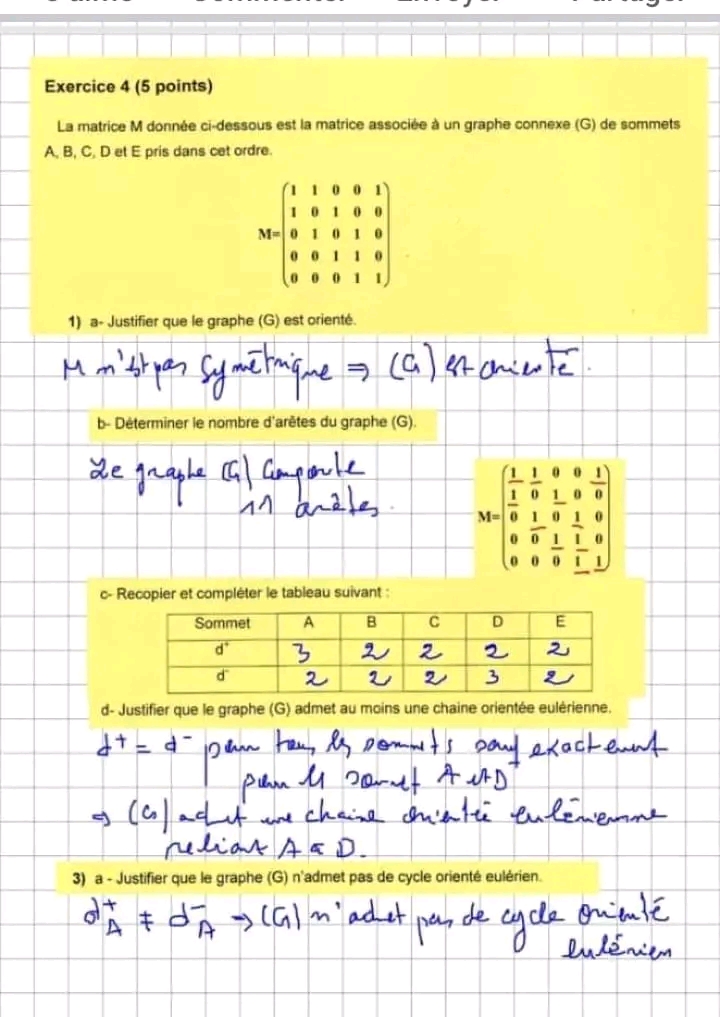 Exercice 4 (5 points)
La matrice M donnée ci-dessous est la matrice associée à un graphe connexe (G) de sommets
A, B, C, D et E pris dans cet ordre.
1 1 0 0 1
1 0 1 0 0
M= 0 1 0 1 0
0 0 1 1 0
0 0 0 1 1
1) a- Justifier que le graphe (G) est orienté.
M n'est pas symétrique ⇒ (G) est orienté.
b- Déterminer le nombre d'arêtes du graphe (G).
Le graphe (G) comporte
11 arêtes.
1 1 0 0 1
1 0 1 0 0
M= 0 1 0 1 0
0 0 1 1 0
0 0 0 1 1
c- Recopier et compléter le tableau suivant :
Sommet A B C D E
d⁺ 3 2 2 2 2
d⁻ 2 2 2 3 2
d- Justifier que le graphe (G) admet au moins une chaine orientée eulérienne.
d⁺ = d⁻ pour tous les sommets sauf exactement
pour les sommet A et D
⇒ (G) admet une chaine orientée eulérienne
reliant A à D.
3) a - Justifier que le graphe (G) n'admet pas de cycle orienté eulérien.
d⁺A ≠ d⁻A → (G) n'admet pas de cycle orienté
eulérien